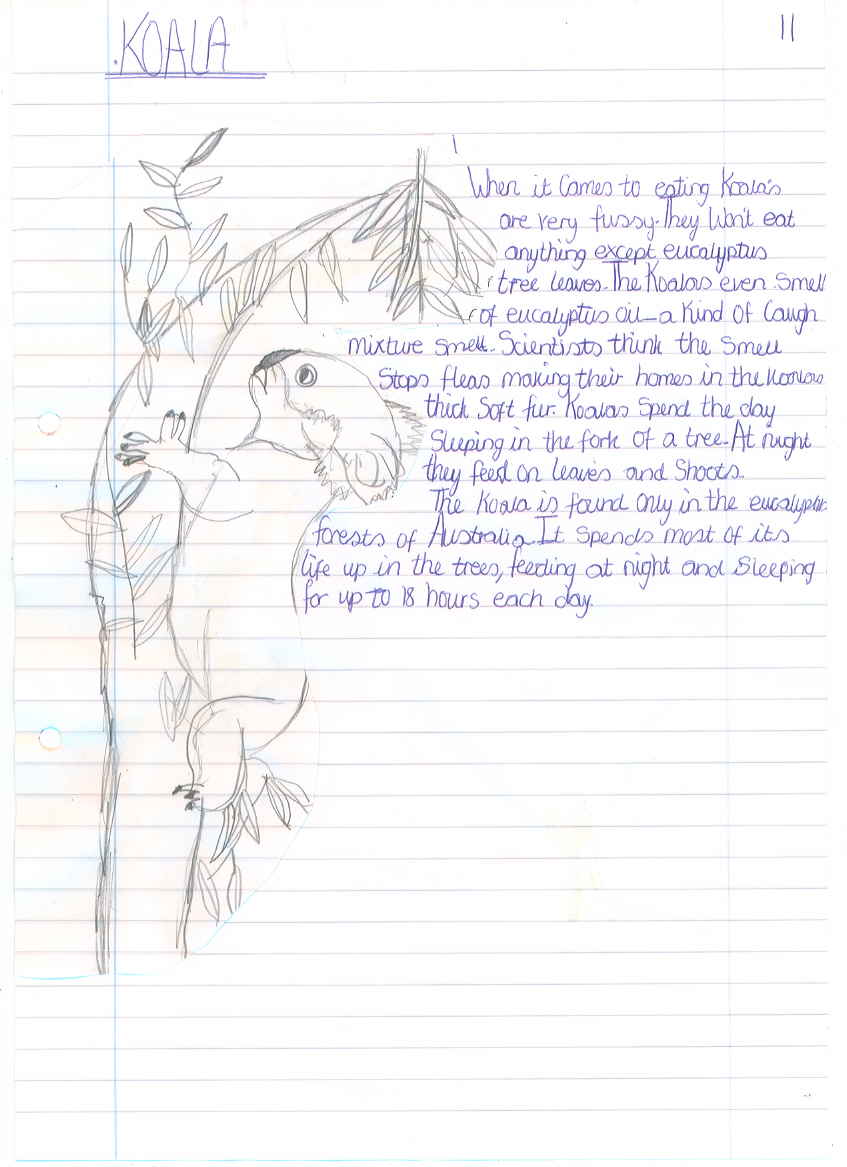 .KOALA
11
When it Comes to eating Koala's
are very fussy. They Won't eat
anything except eucalyptus
tree leaves. The Koalas even Smell
of eucalyptus oil - a Kind Of Cough
mixture smell. Scientists think the Smell
Stops fleas making their homes in the Koalas
thick Soft fur. Koalas Spend the day
Sleeping in the fork of a tree. At night
they feed on leaves and Shoots.
The Koala is found Only in the eucalyptus
forests of Australia. It Spends most of its
life up in the trees, feeding at night and Sleeping
for up to 18 hours each day.